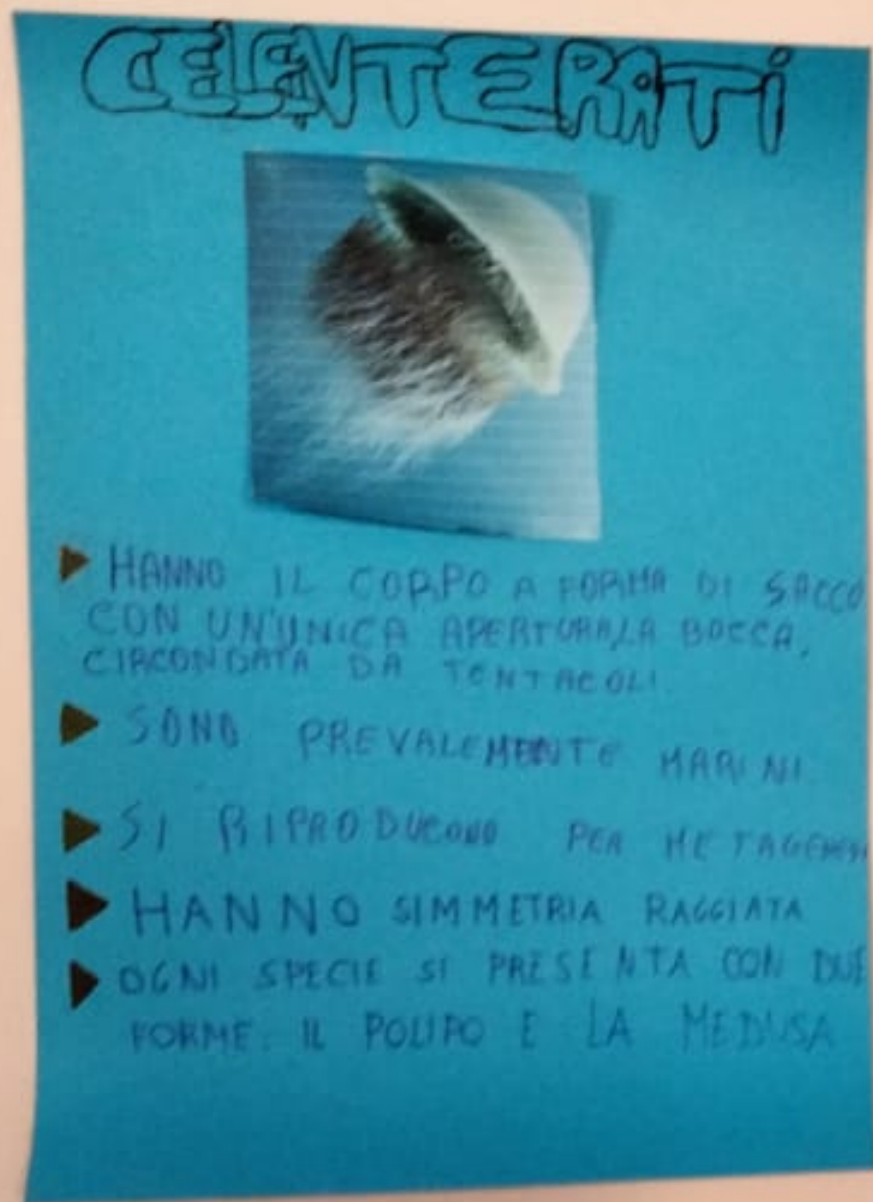 CELENTERATI
HANNO IL CORPO A FORMA DI SACCO
CON UN'UNICA APERTURA,LA BOCCA,
CIRCONDATA DA TENTACOLI.
SONO PREVALEMENTE MARINI
SI RIPRODUCONO PER
HANNO SIMMETRIA RAGGIATA
OGNI SPECIE SI PRESENTA CON DUE
FORME: IL POLIPO E LA MEDUSA